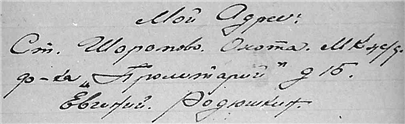 Мой Адрес:
Ст. Шоропово. Охота. М К ж/д.
ф-ка „Пролетарий" д 16.
Евгений. Родюшкин.